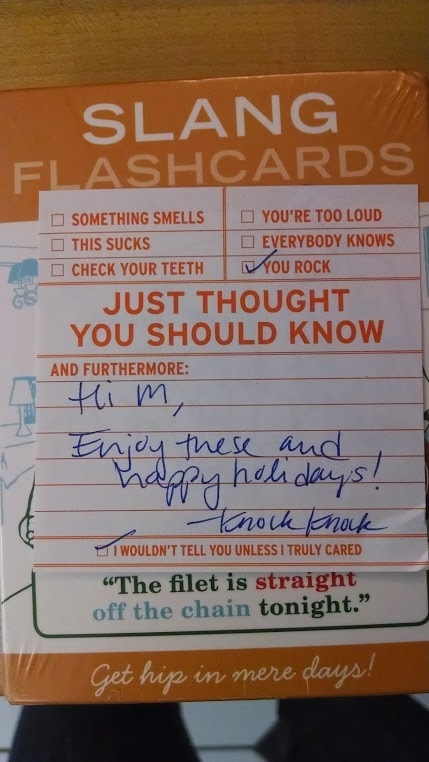 SLANG
FLASHCARDS
SOMETHING SMELLS
THIS SUCKS
CHECK YOUR TEETH
YOU'RE TOO LOUD
EVERYBODY KNOWS
YOU ROCK
JUST THOUGHT
YOU SHOULD KNOW
AND FURTHERMORE:
Hi M,
Enjoy these and
happy holidays!
-Knock Knock
I WOULDN'T TELL YOU UNLESS I TRULY CARED
"The filet is straight
off the chain tonight."
Get hip in mere days!